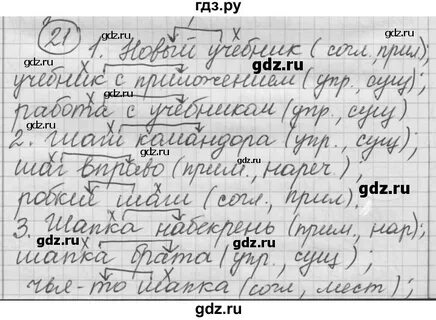 гдз.ру
21 1. Новый учебник (согл., прил);
учебник с приложением (упр., сущ);
работа с учебником (упр., сущ)
2. шаги командора (упр., сущ);
шаг вправо (прим., нареч.),
робкие шаги (согл., прил).
3. Шапка набекрень (прим., нар);
шапка брата (упр., сущ);
чья-то шапка (согл., мест);
gdz.ru
gdz.ru
gdz.ru
gdz.ru
gdz.ru
gdz.ru
gdz.ru
gdz.ru
gdz.ru
gdz.ru
gdz.ru